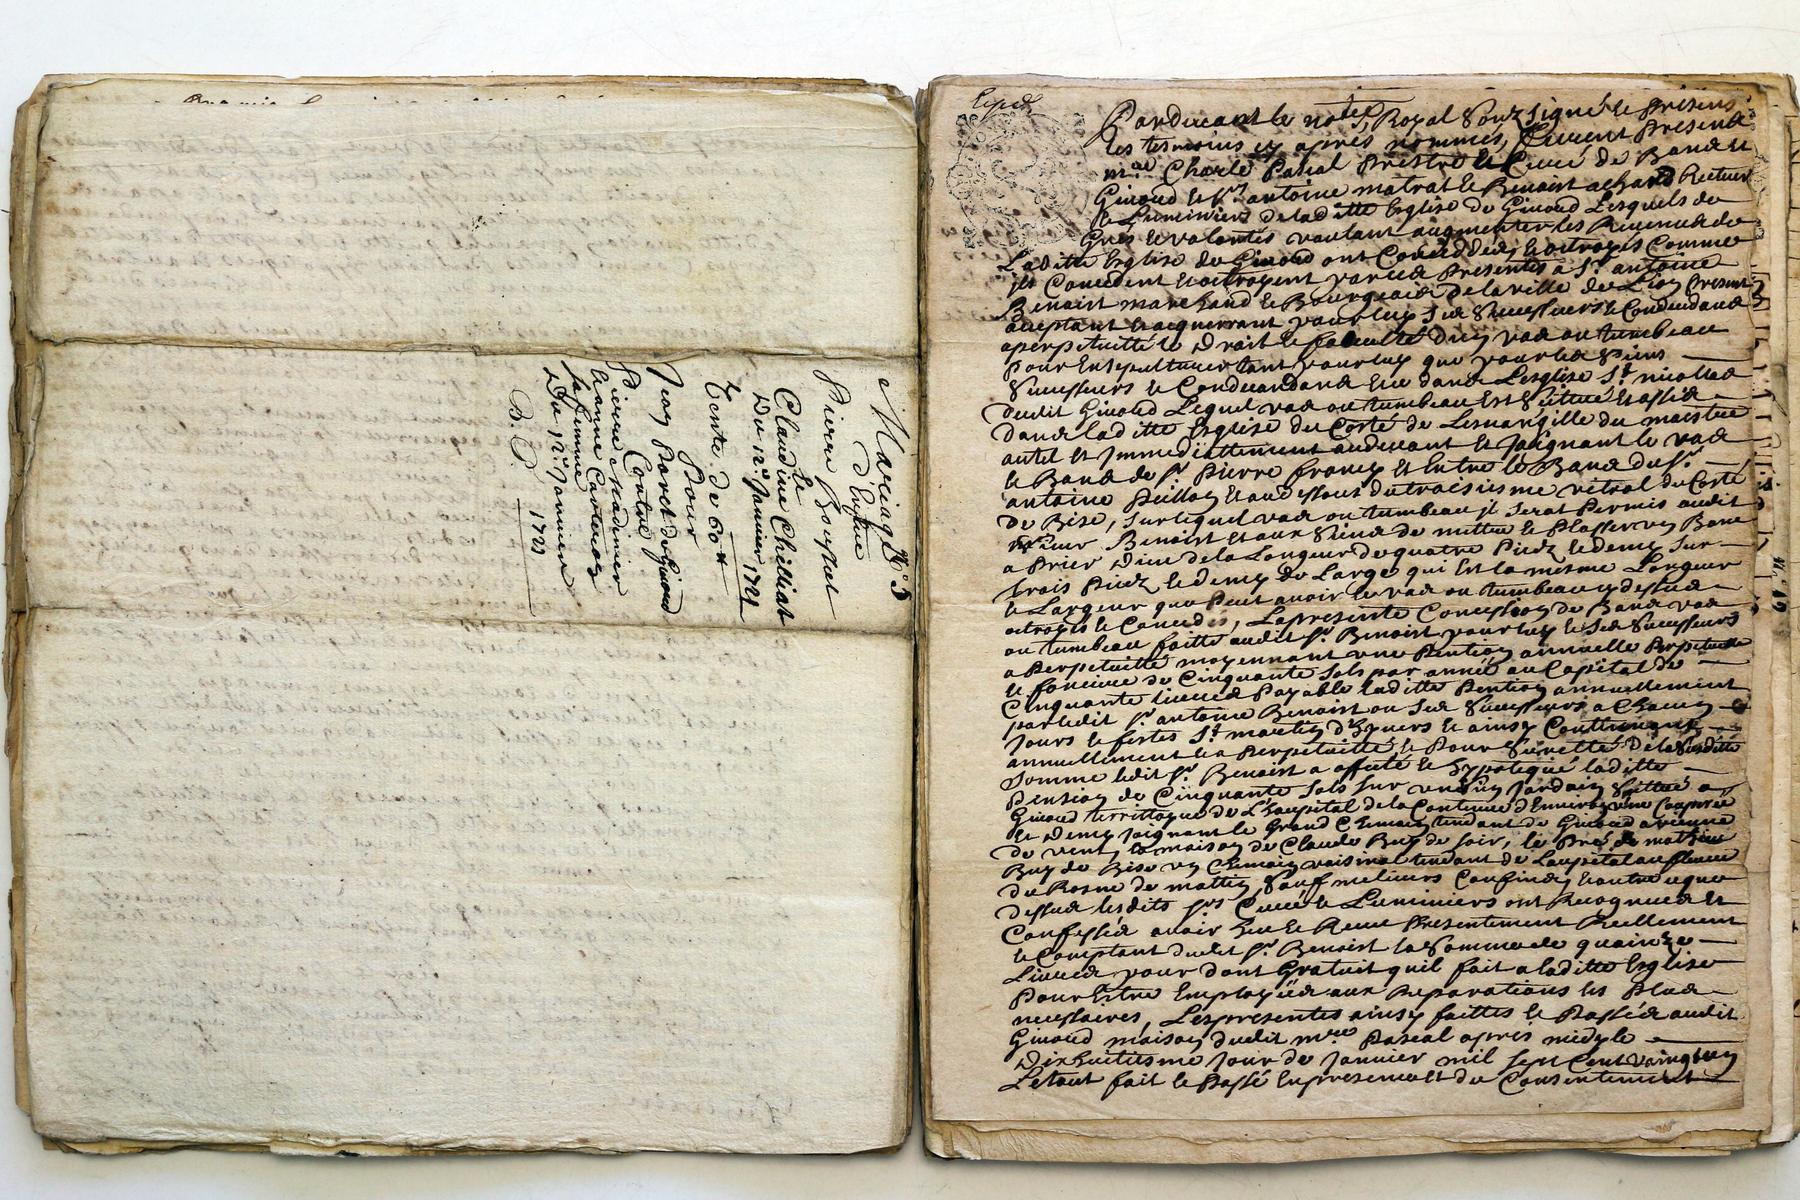 N.° 5
Mariage
D'entre
Pierre Rousset
Et
Claudine Chilliat
Du 12.e Janvier 1721
Vente de 60 #
Pour
Jean Poret de Giraud
Contre
Pierre Madinier
Et anne
sa femme
Du 12.e Janvier
1721
Expédié
Pardevant le notre Royal Soubsigné et presens
les tesmoins cy apres nommés, furent presens
mre Charle Pascal prestre et Curé de
Giraud et Sr antoine matrat et Benoist achard Recteur
et Luminiers de laditte Esglise de Giraud Lesquels de
Grés et volontés voulant augmenter les Revenus de
Laditte Esglise de Giraud ont Conceddés et octroyés Comme
Ils Concedent et octroyent par ces presentes a Sr antoine
Benoist marchand et Bourgeois de la ville de Lion present
acceptant et acquerrant pour luy ses successeurs et
a perpetuitté le Droit et faculté d'un vas ou tumbeau
pour Ensepulturer tant pour luy que pour les siens
Successeurs et dans Lesglise St nicollas
dudit Giraud Lequel vas ou tumbeau Est scittué Et assis
dans laditte Esglise du Costé de Lesvangille du maistre
autel Et Immediattement audevant Et Joignant le vas
et Banc de Sr Pierre francy Et Entre le Banc du Sr
antoine Et au dessous du troisiesme vitral du Costé
de Bise, sur lequel vas ou tumbeau Il serat Permis audit
sieur Benoist Et aux siens de mettre et Plasser un Banc
a Prier Dieu de la Longeur de quatre Piedz et demy sur
trois Piedz et demy de Large qui Est la mesme Longeur
et Largeur que Peut avoir le vas ou tumbeau cy dessus
octroyés et Concedés, La presente Concession de Banc vas
ou tumbeau faitte audit Sr Benoist pour luy et ses successeurs
a Perpetuitté moyennant une Pention annuelle Perpetuelle
et fonciere de Cinquante sols par année au Capital de
Cinquante livres Payable laditte Pention annuellement
par ledit Sr antoine Benoist ou ses successeurs a Chacun
Jours et festes St martin d'hyvers et ainsy Continuant
annuellement Et a Perpetuitté, et Pour seuretté de la susditte
Somme ledit Sr Benoist a affecté et hypotequé laditte
Pension de Cinquante sols sur un sien Jardin scittué a
Giraud territtoyre de L'haupital de la Contenue d'Environ une Coupée
Et Demy Joignant le Grand Chemin tendant de Giraud a vienne
de vent, la maison de Claude Buy de soir, le Pré de mathieu
Buy de Bise un Chemin voisinal tendant de Laupital au fleuve
du Rosne de mattin, sauf melieurs Confins, Et outre ce que
dessus lesdits Srs Curé et Luminiers ont Recognus Et
Confessés avoir heu et Receu Presentement Reellement
et Comptant dudit Sr Benoist la Somme de quainze
Livres pour dont Gratuit quil fait a laditte Esglise
Pour Estre Employés aux Reparations les Plus
necessaires, Les presentes ainsy faittes et Passées audit
Giraud maison dudit mre Pascal apres midy le
Dixhuitiesme Jour de Janvier mil sept Cent vaingt un
Le tout fait et Passé En presence et du Consentement